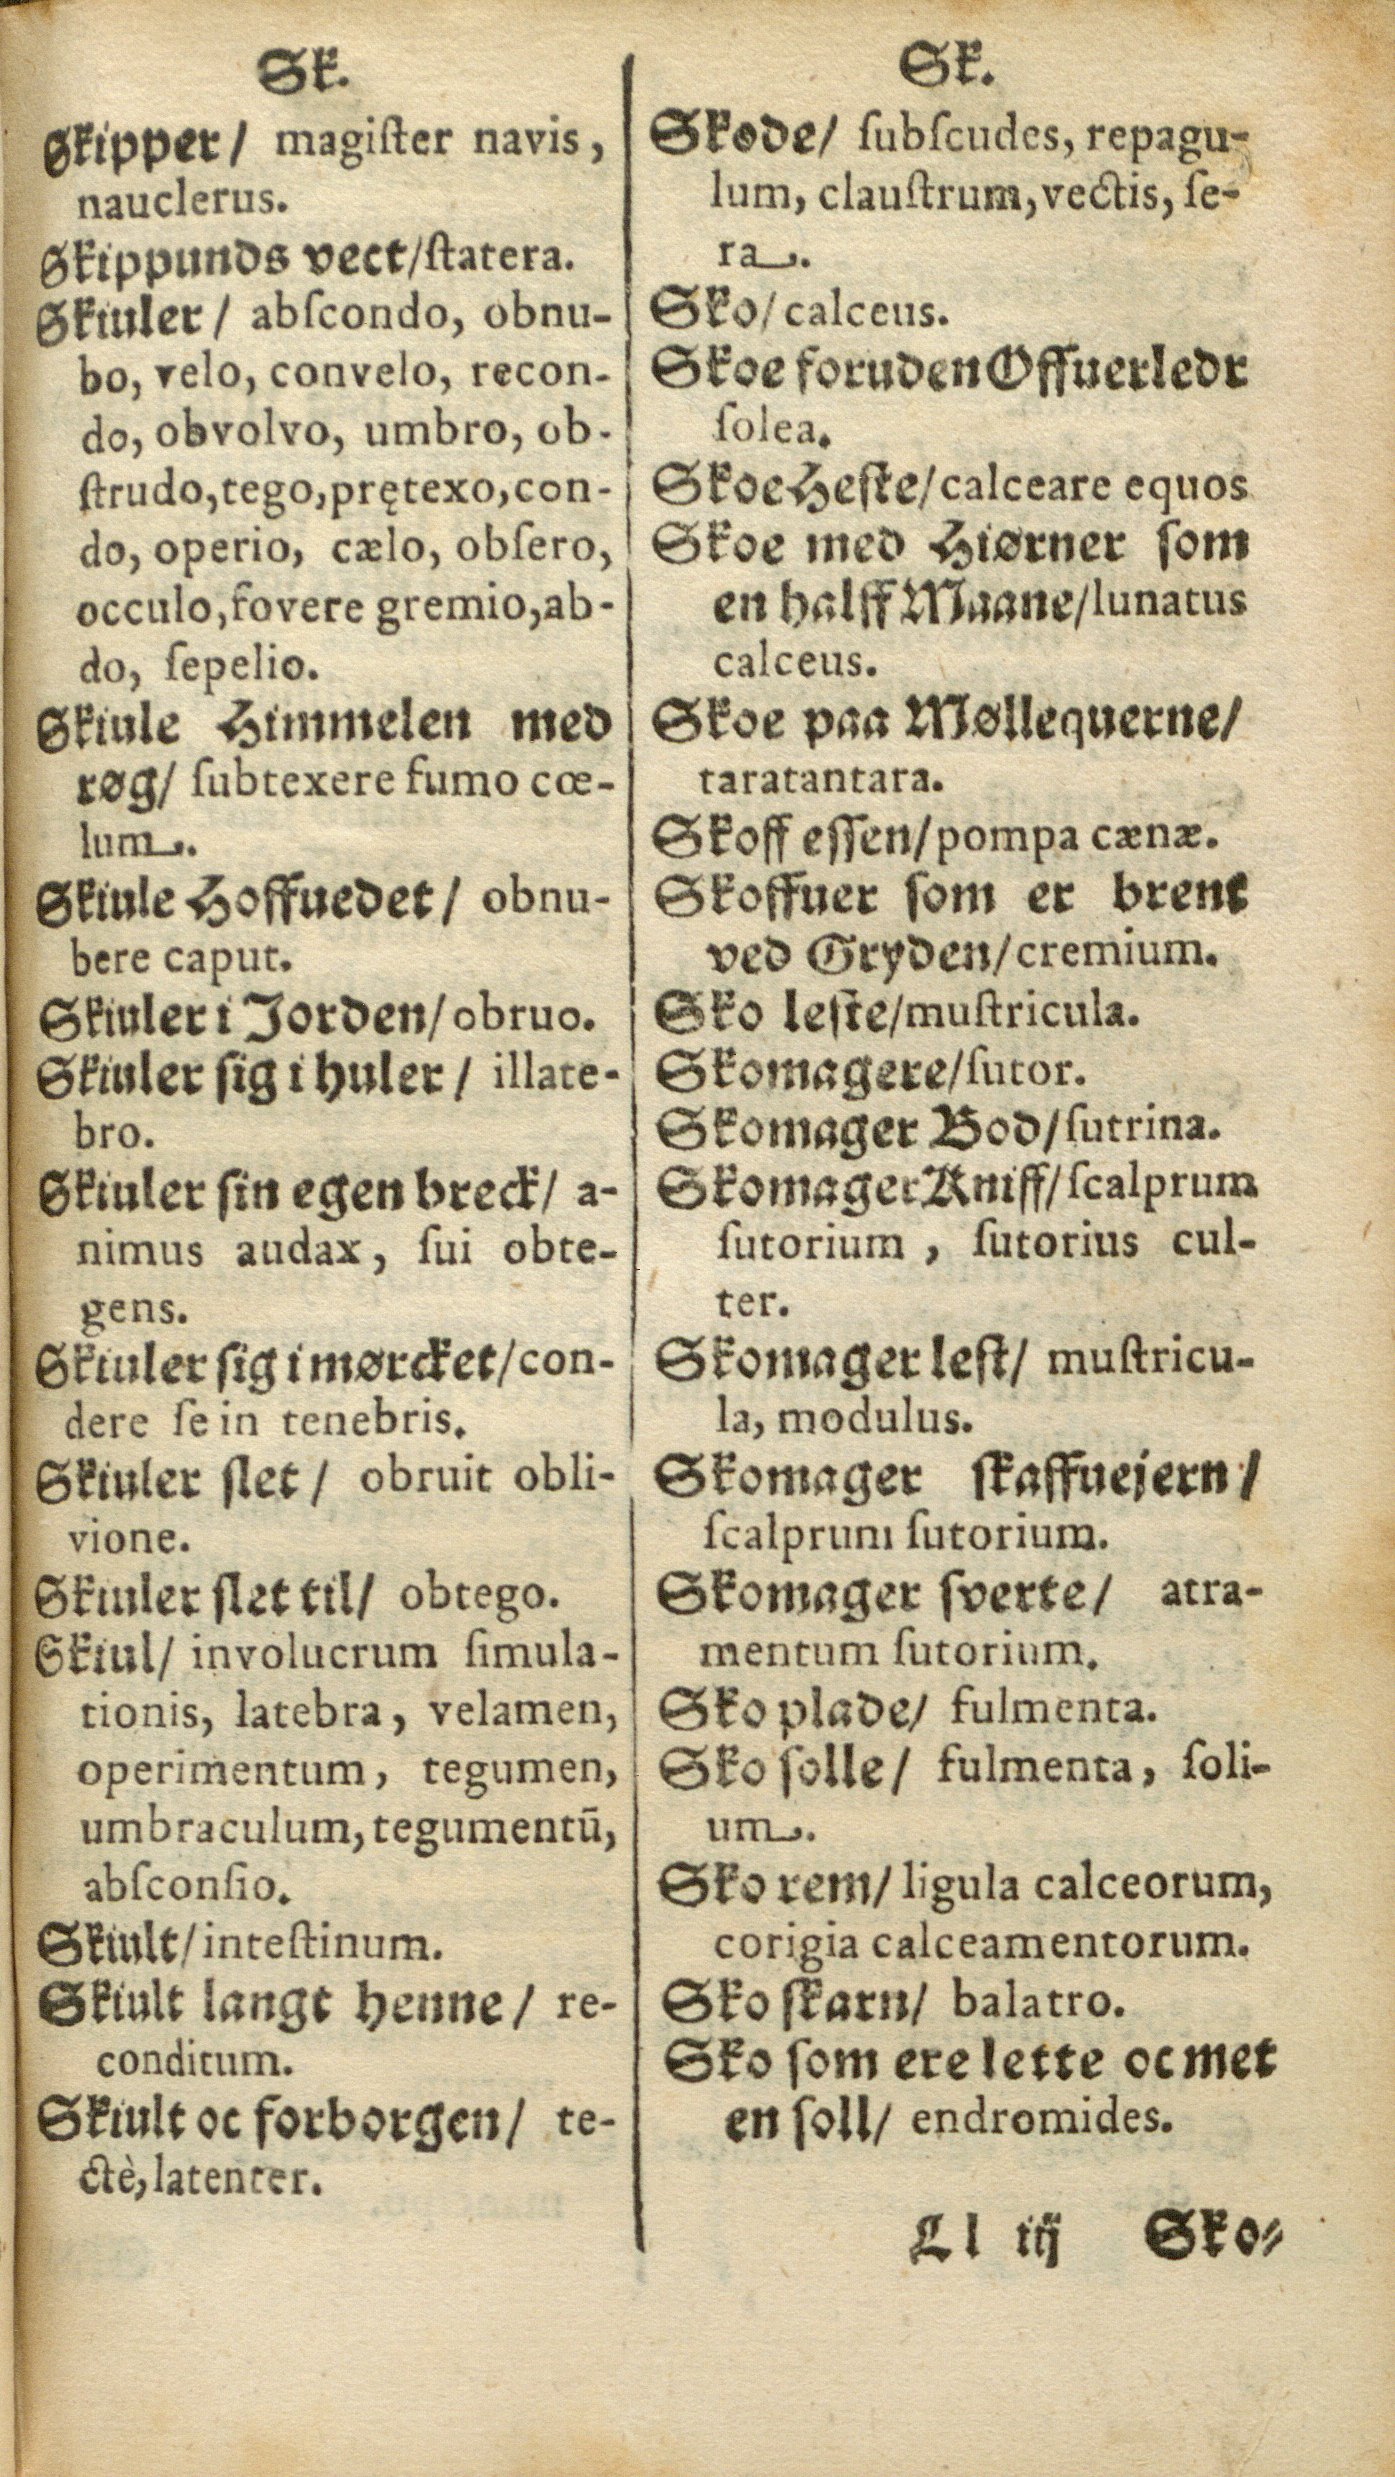 Sk.
Skipper/ magiſter navis,
nauclerus.
Skippunds vect/ſtatera.
Skiuler/ abſcondo, obnu-
bo, velo, convelo, recon-
do, obvolvo, umbro, ob-
ſtrudo,tego,prętexo,con-
do, operio, cælo, obſero,
occulo,fovere gremio,ab-
do, ſepelio.
Skiule Himmelen med
røg/ ſubtexere fumo cœ-
lum.
Skiule Hoffuedet/ obnu-
bere caput.
Skiuler i Jorden/obruo.
Skiuler ſig i huler/ illate-
bro.
Skiuler ſin egen breck/ a-
nimus audax, ſui obte-
gens.
Skiuler ſig i mørcket/con-
dere ſe in tenebris.
Skiuler ſlet/ obruit obli-
vione.
Skiuler ſlet til/ obtego.
Skiul/ involucrum ſimula-
tionis, latebra, velamen,
operimentum, tegumen,
umbraculum,tegumentū,
abſconſio.
Skiult/inteſtinum.
Skiult langt henne/ re-
conditum.
Skiult oc forborgen/ te-
ctè,latenter.
Sk.
Skode/ ſubſcudes, repagu-
lum, clauſtrum,vectis, ſe-
ra.
Sko/calceus.
Skoe foruden Offuerledr
ſolea.
Skoe Heſte/calceare equos
Skoe med Hiørner ſom
en halff Maane/lunatus
calceus.
Skoe paa Møllequerne/
taratantara.
Skoff eſſen/pompa cænæ.
Skoffuer ſom er brent
ved Gryden/cremium.
Sko leſte/muſtricula.
Skomagere/ſutor.
Skomager Bod/ſutrina.
Skomager Kniff/ſcalprum
ſutorium, ſutorius cul-
ter.
Skomager leſt/ muſtricu-
la, modulus.
Skomager ſkaffuejern/
ſcalprum ſutorium.
Skomager ſverte/ atra-
mentum ſutorium.
Sko plade/ fulmenta.
Sko ſolle/ fulmenta, ſoli-
um.
Sko rem/ ligula calceorum,
corigia calceamentorum.
Sko ſkarn/ balatro.
Sko ſom ere lette oc met
en ſoll/ endromides.
Ll iij Sko⸗